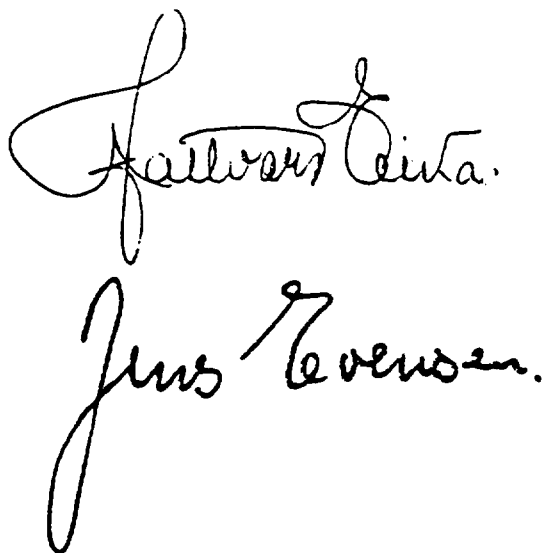 Hallvard Eika.
Jens Evensen.